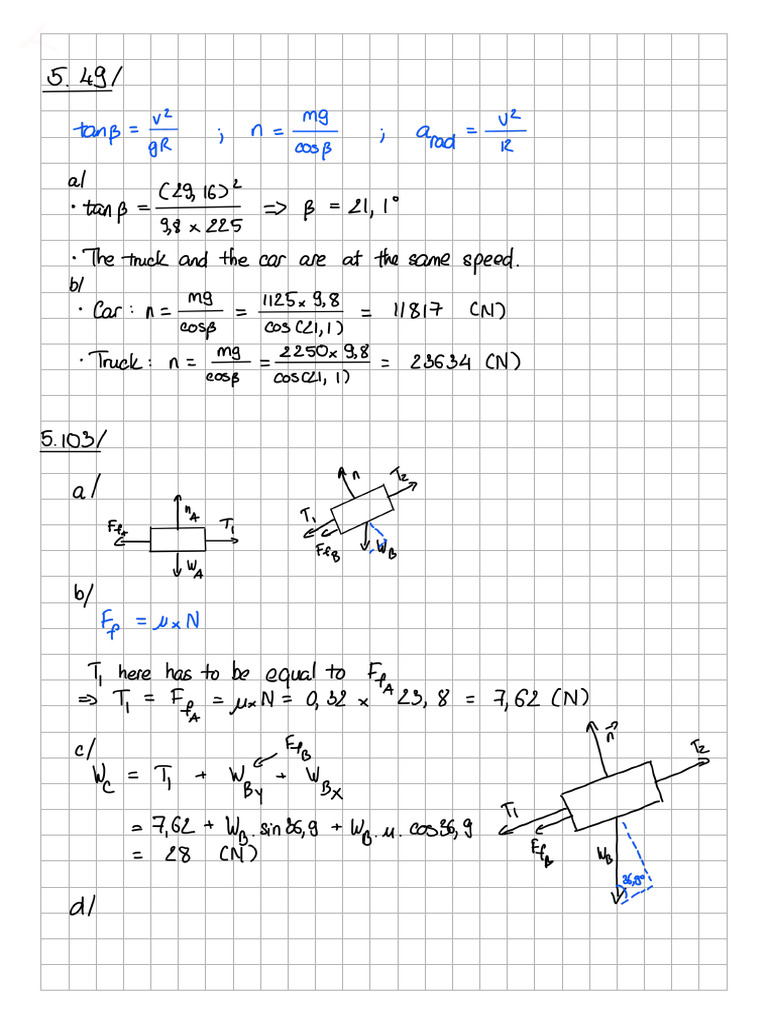 5.49/
tanβ = v²/gR ; n = mg/cosβ ; a_rad = v²/R
a/
· tanβ = (29,16)²/9,8 × 225 => β = 21,1°
· The truck and the car are at the same speed.
b/
· Car: n = mg/cosβ = 1125 × 9,8/cos(21,1) = 11817 (N)
· Truck: n = mg/cosβ = 2250 × 9,8/cos(21,1) = 23634 (N)
5.103/
a/
n_A
F_fA
T₁
W_A
n
T₂
T₁
F_fB
W_B
b/
F_f = μ × N
T₁ here has to be equal to F_fA
=> T₁ = F_fA = μ × N = 0,32 × 23,8 = 7,62 (N)
c/
F_fB
W_C = T₁ + W_BY + W_BX
= 7,62 + W_B . sin36,9 + W_B . μ . cos36,9
= 28 (N)
n⃗
T₂
T₁
F_fB
W_B
36,9°
d/